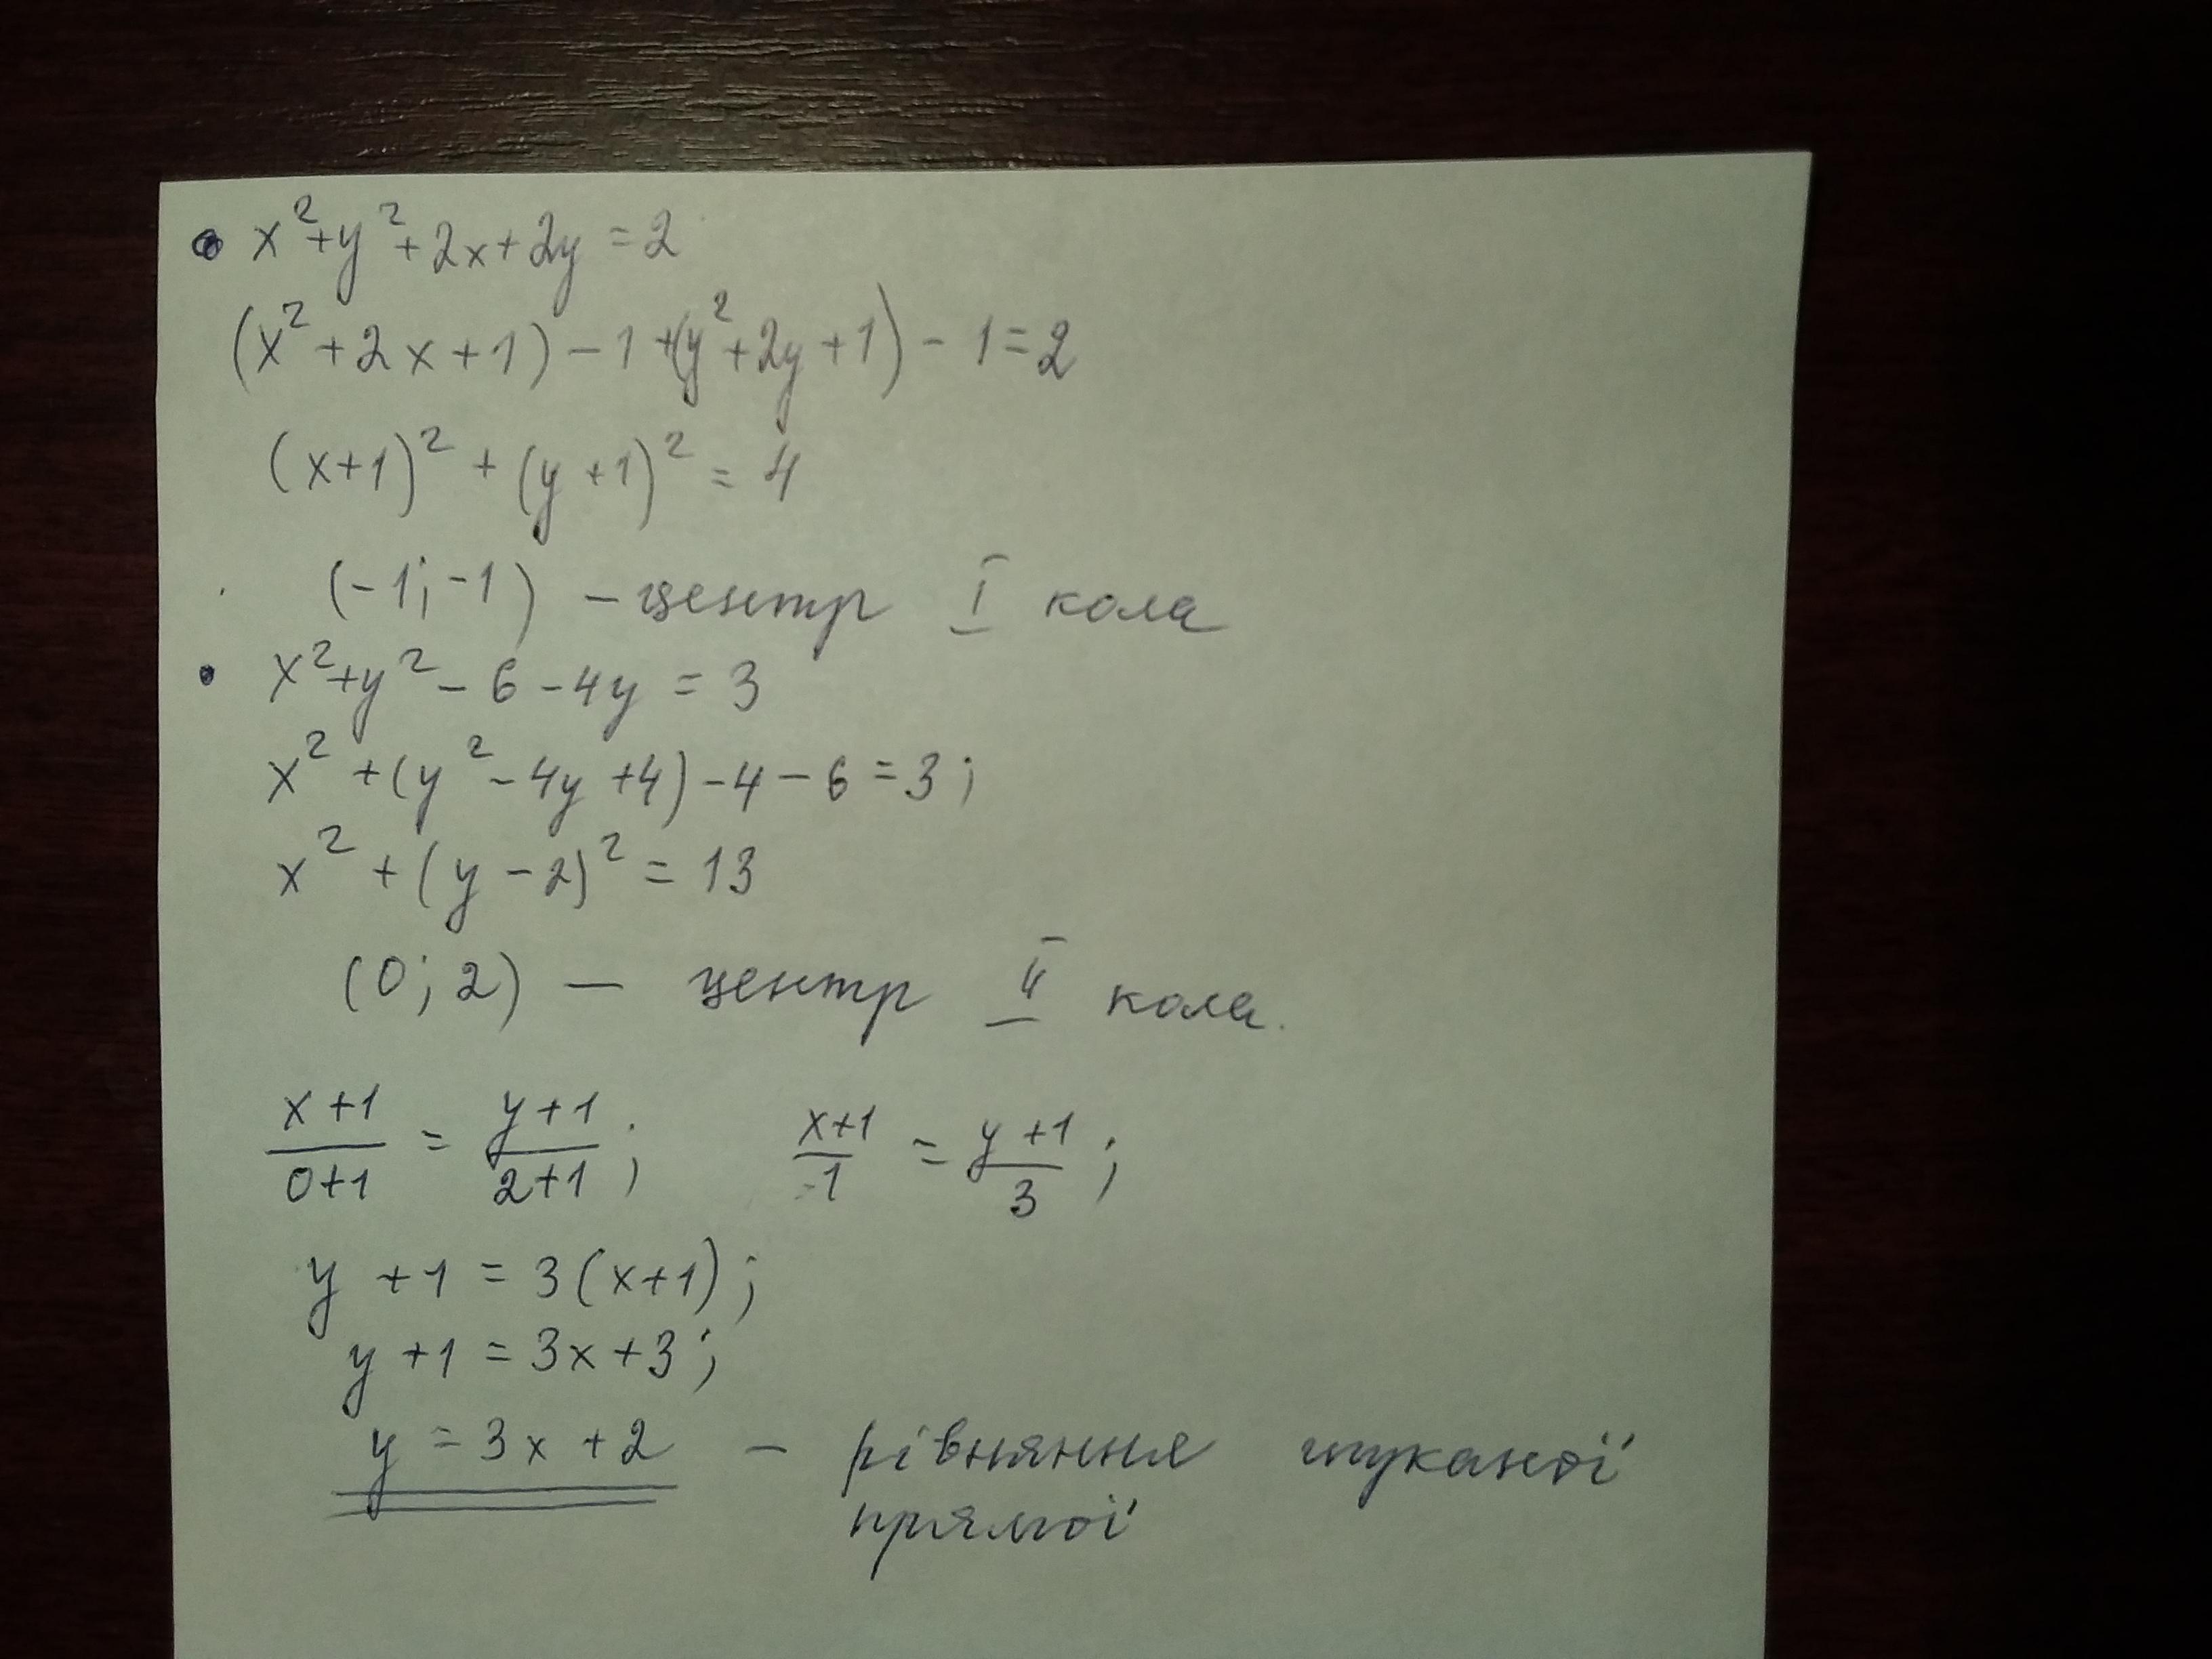 • x²+y²+2x+2y=2
(x²+2x+1)-1+(y²+2y+1)-1=2
(x+1)²+(y+1)²=4
(-1;-1) – центр I кола
• x²+y²-6-4y=3
x²+(y²-4y+4)-4-6=3;
x²+(y-2)²=13
(0;2) – центр II кола.
(x+1)/(0+1)=(y+1)/(2+1); (x+1)/1=(y+1)/3;
y+1=3(x+1);
y+1=3x+3;
y=3x+2 – рівняння шуканої
прямої